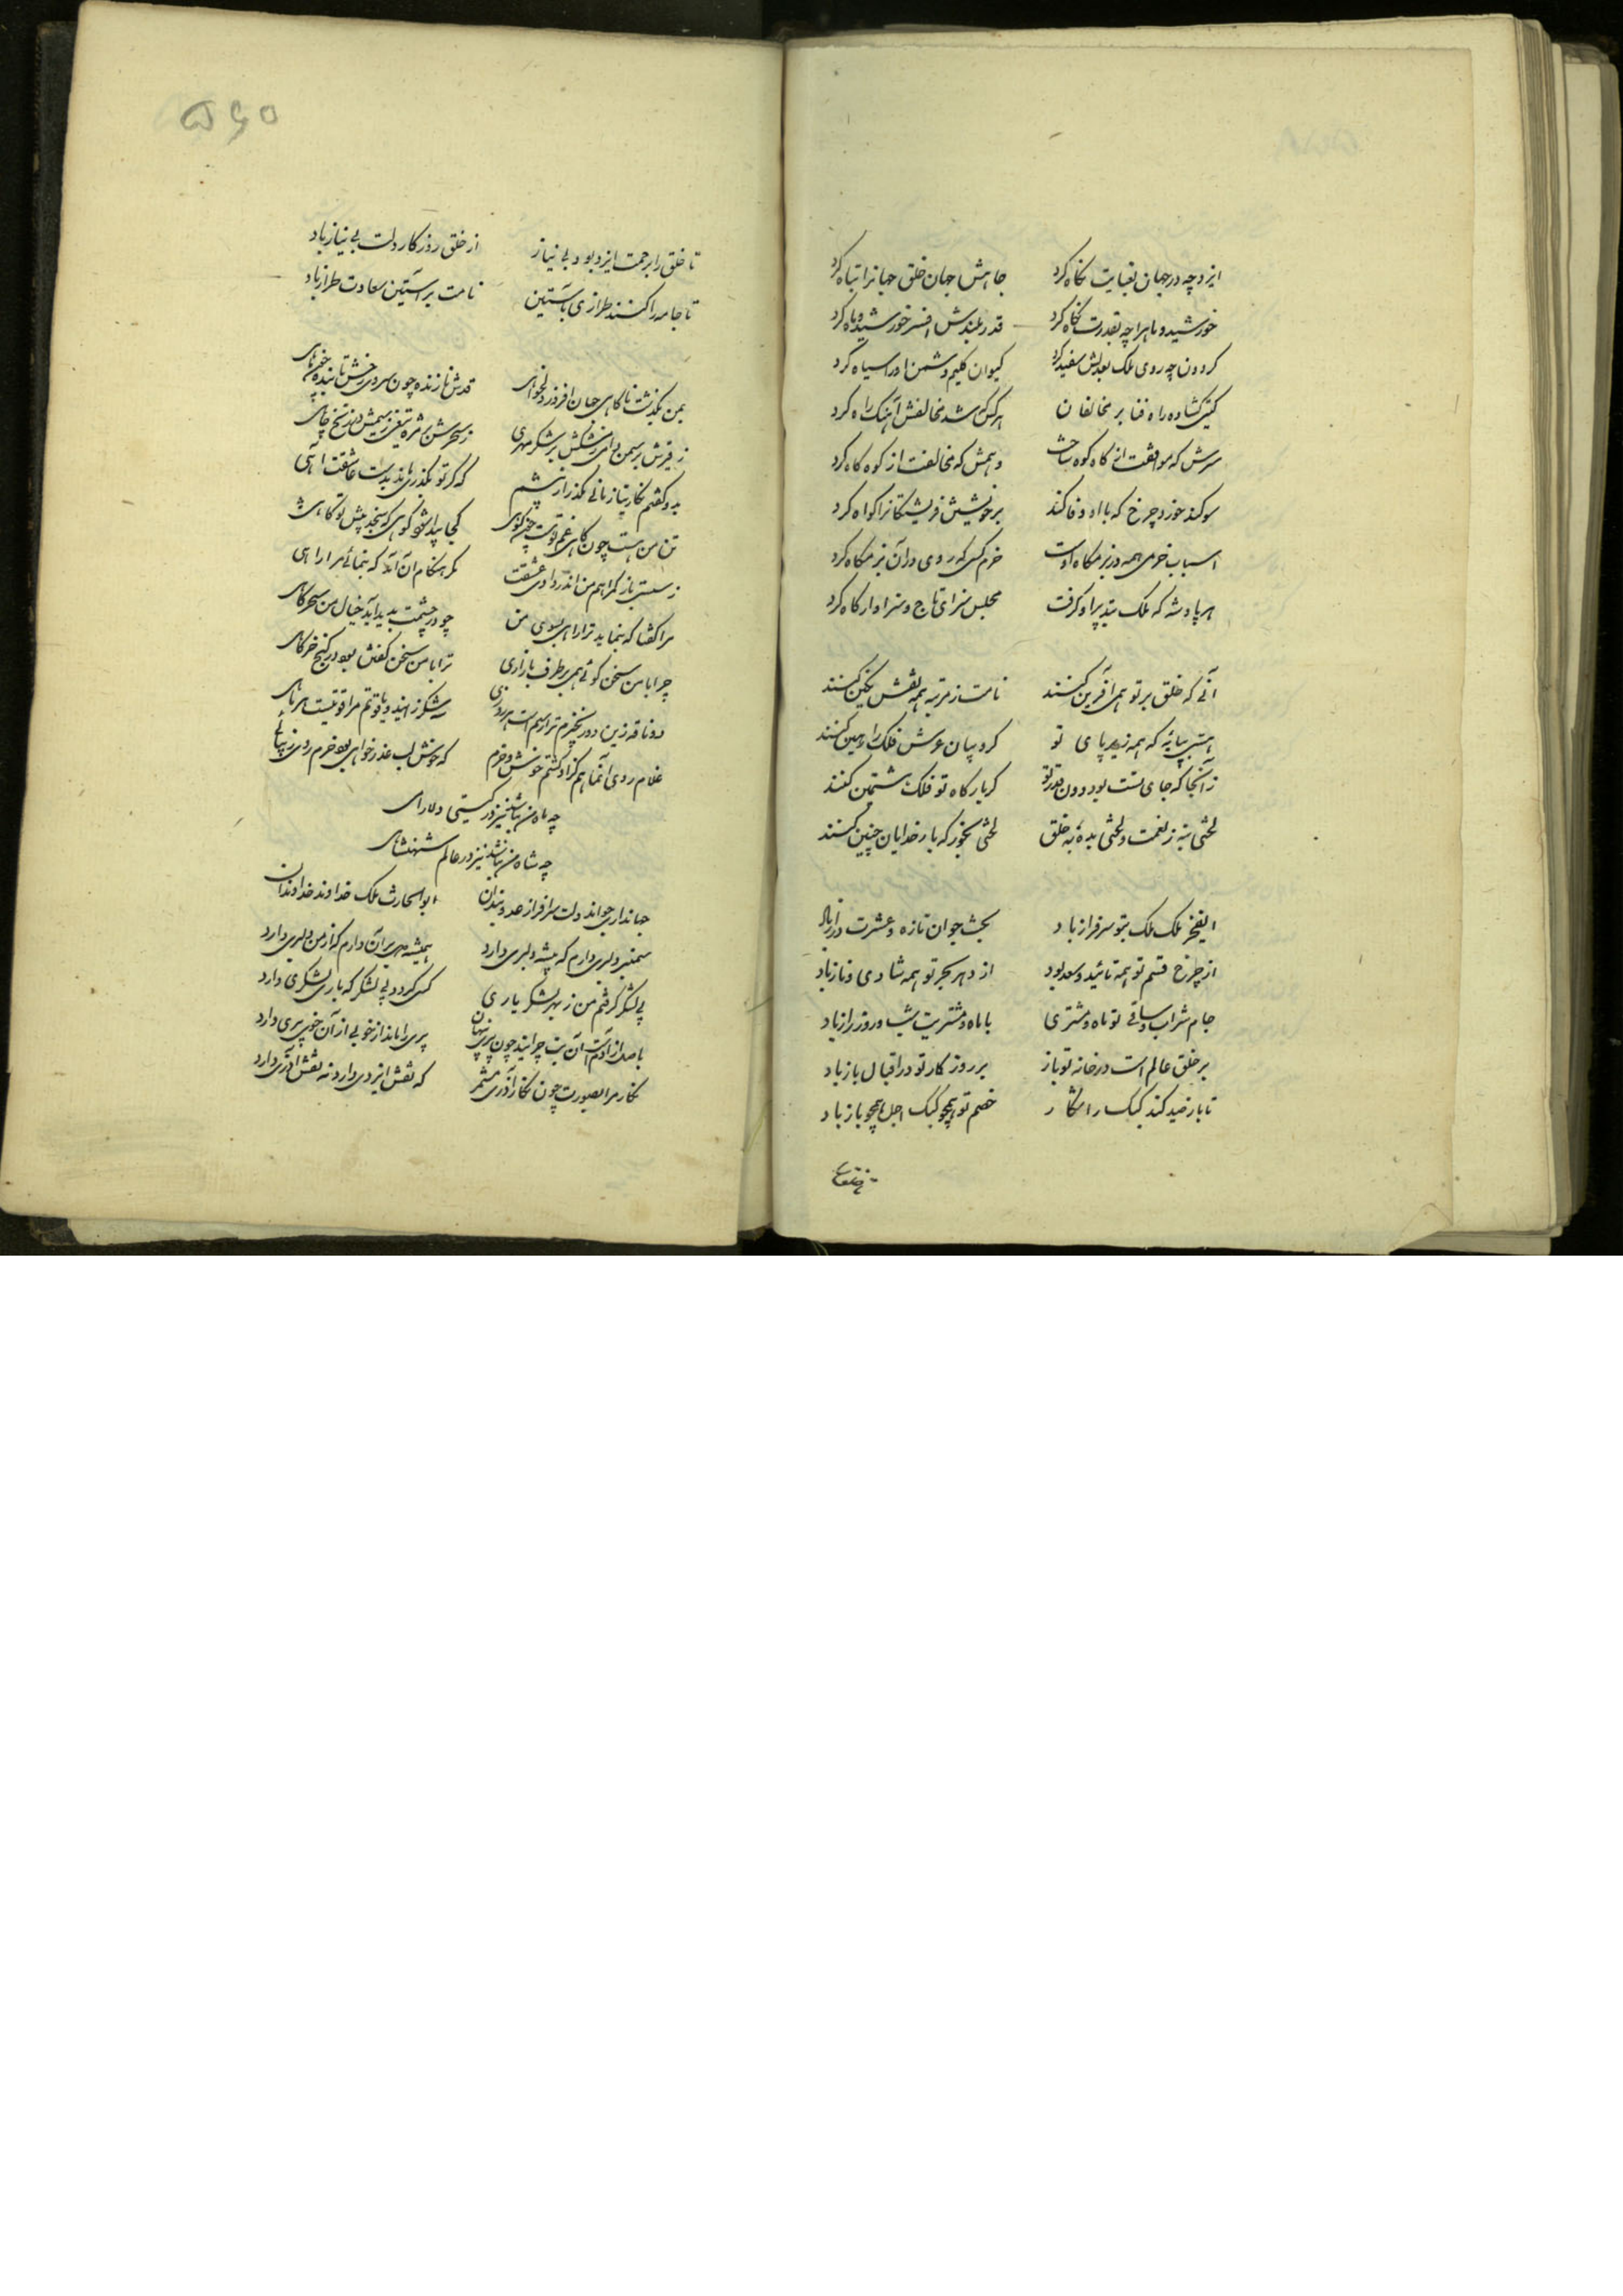 ایزد چه در جهان بغایت نکاه کرد جاهش جهان خلق جهانرا تباه کرد
خورشید و ماه را چه بقدرت نکاه کرد قدر بلندش افسر خورشید و ماه کرد
کردون چه روی ملک بعدلش سفید کرد کیوان کلیم دشمن او را سیاه کرد
کیتی کشاده راه فنا بر مخالفان هر کس که شد مخالفش آهنک راه کرد
مهرش که موافقت از کاه کوه ساخت و همش که مخالفت از کوه کاه کرد
سوکند خورد چرخ که با او وفا کند بر خویشتن فریشتکانرا کواه کرد
اسباب خرمی همه در بزمکاه اوست خرم کسی که روی در آن بزمکاه کرد
هر پادشه که ملک بتدبیر او کرفت مجلس سزای تاج و سزاوار کاه کرد
آنی که خلق بر تو همی آفرین کنند نامت ز مرتبه همه نقش نکین کنند
هستی بپایه که همه زیر پای تو کروبیان عرش فلک را زمین کنند
زآنجا که جای تست بود دون قدر تو کر بارکاه تو فلک هشتمین کنند
لختی بنه ز نعمت و لختی بده به خلق لختی بخور که بار خدایان چنین کنند
ای فخر ملک ملک بتو سرفراز باد بخت جوان تازه و عشرت دراز باد
از چرخ قسم تو همه تائید و سعد بود از دهر بحر تو همه شادی و ناز باد
جام شراب و ساقی تو ماه و مشتری با ماه و مشتریت شب و روز راز باد
بر خلق عالم است در خانه تو باز بر روز کار تو در اقبال باز باد
تا باز صید کند کبک را مکار خصم تو همچو کبک اجل همچو باز باد
تا خلق را برحمت ایزد بود بی نیاز از خلق روزکار دلت بی نیاز باد
تا جامه را کنند طرازی بآستین نامت بر آستین سعادت طراز باد
بمن بکذشت ناکاهی جان افروز دلخواهی قدش نازنده چون سروی رخش تابنده چون ماهی
بدو کفتم نکارینا زمانی مکذر از پیشم که کر تو بکذری ماند بدست عاشقت آهی
تن من هست چون کاهی غم تو هست چون کوهی کجا پیدا شود کوهی که سنجد پیش تو کاهی
مکر هنکام آن آمد که بنمائی مرا راهی
مرا کفتا که بنماید ترا راهی بسوی من چو در چشمت پدید آید خیال من سحرکاهی
چرا با من سخن کوئی همی بر طرف بازاری ترا با من سخن کفتن بود در کنج خرکاهی
غلام روی آنماهم کزو کشتم خوش و خرم که خوش لب عذر خواهی بود خرم روی
چه ماه من نباشد نیز در کیتی دلارای
چه شاه من نباشد نیز در عالم شهنشاهی
جهانداری جوانبخت دلت سرافراز عدوبندان ابوالحارث ملک خداوند خداوندان
سمنبر دلبری دارم که پیشه دلبری دارد همیشه مهر بر آن دارم که از من دلبری دارد
پی لشکر کرفتم من ز بهر لشکر یاری کسی کردد پی لشکر که یار لشکری دارد
باصل از آدم است آن بت چرا شد چون پری پنهان پری را ماند از خوبی از آن خوی پری دارد
نکار من بصورت چون نکار آذری مشمر که نقش ایزدی دارد نه نقش آذری دارد